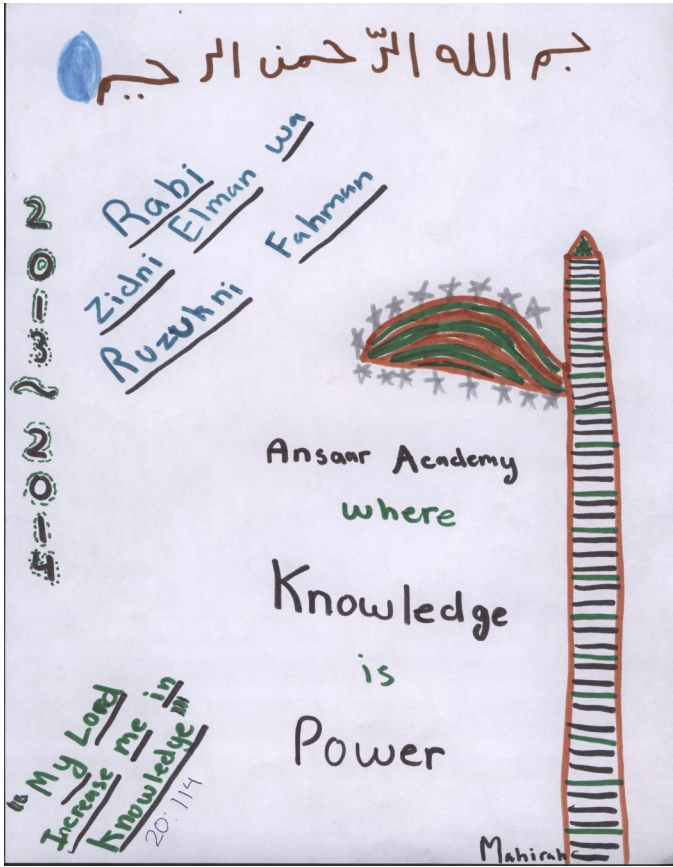 بسم الله الرّحمن الرحيم
Rabi
Zidni Elman wa
Ruzukni Fahman
2013 ~ 2014
Ansaar Academy
where
Knowledge
is
Power
"My Lord
Increase me in
knowledge"
20:114
Mahirah